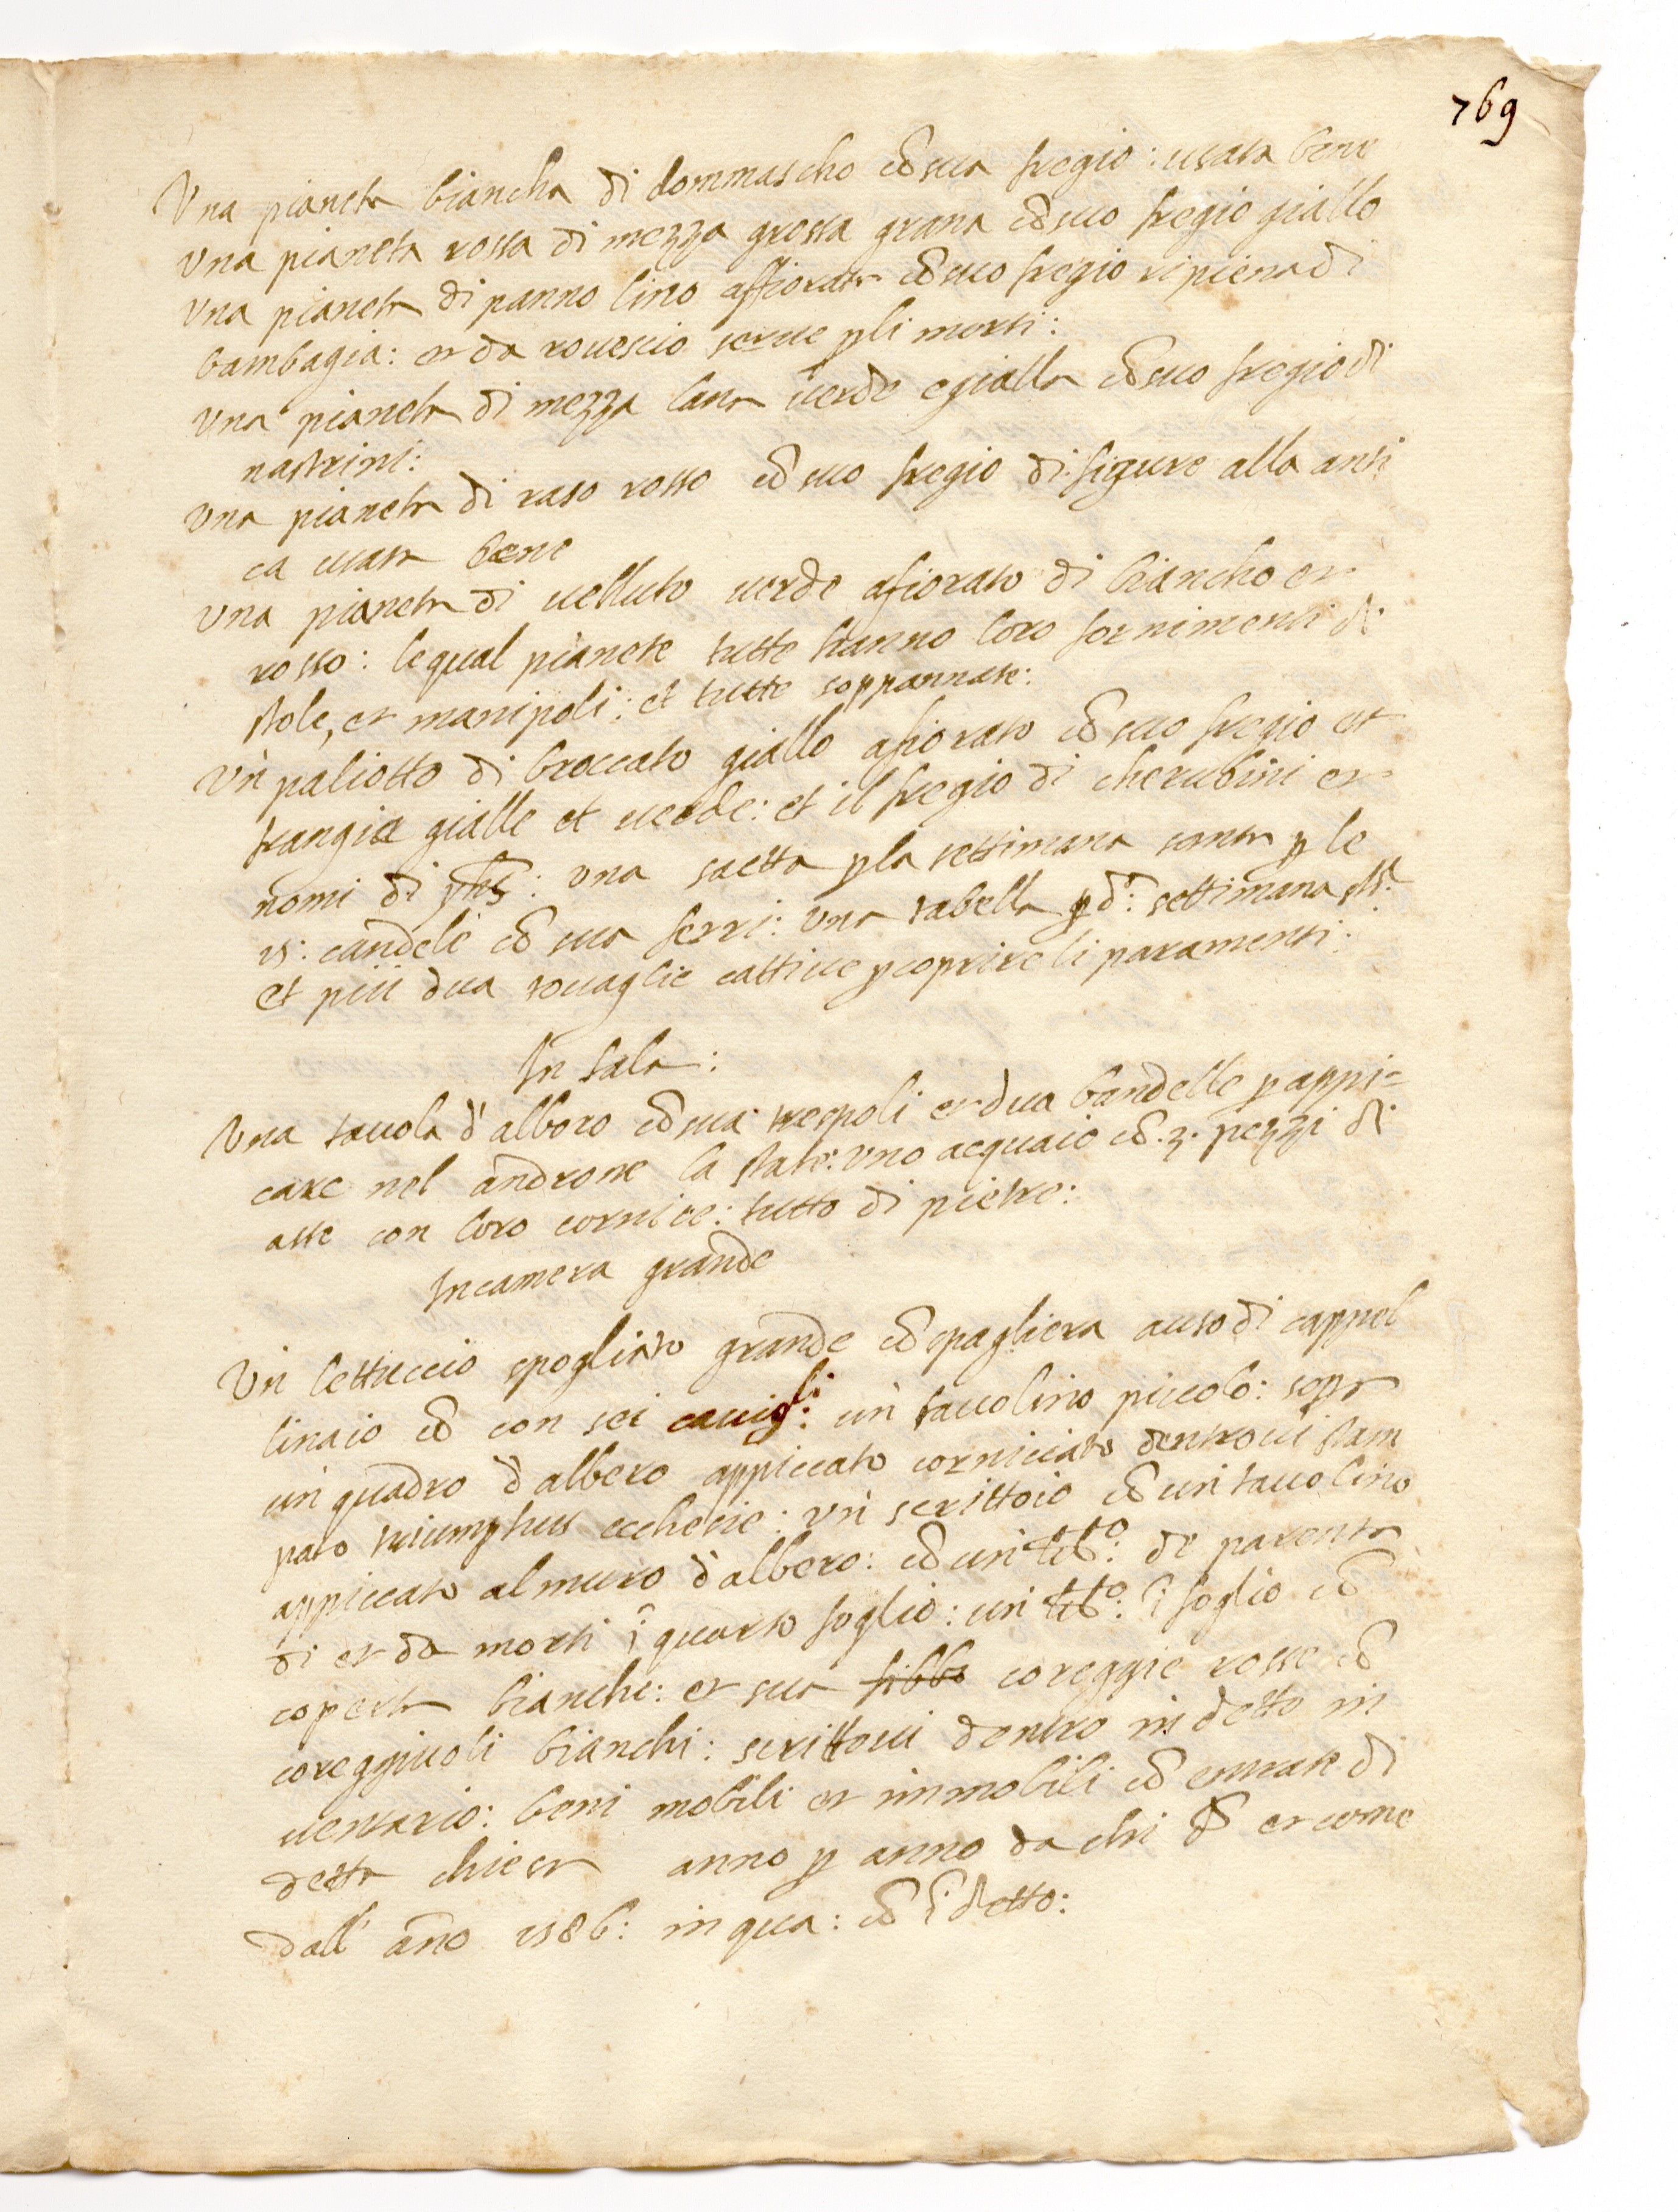 769
Una pianeta biancha di dommascho cõ sua fregio: usata bene
Una pianeta rossa di mezza grossa grana cõ suo fregio giallo
Una pianeta di panno lino affiorata cõ suo fregio ripiena di
bambagia: et da rovescio serve p li morti:
Una pianeta di mezza lana verde e gialla cõ suo fregio di
nastrini:
Una pianeta di raso rosso cõ suo fregio di figure alla anti
ca usata bene
Una pianeta di velluto verde afiorato di biancho et
rosso: le qual pianete tutte hanno loro fornimenti di
stole, et manipoli: et tutte soppannate:
Un paliotto di broccato giallo afiorato cõ suo fregio et
frangie gialle et verde: et il fregio di cherubini et
nomi di yhs: una saetta p la settimana santa p le
15: candele cõ sua ferri: una tabella p d.ª: settimana st.ª
et più dua tovaglie cattive p coprire li paramenti:
In sala:
Una tavola d'alboro cõ sua trespoli et dua bandelle p appi=
care nel androne la state: uno acquaio cõ .3. pezzi di
asse con loro cornice: tutto di pietre:
In camera grande
Un lettuccio spogliato grande cõ spagliera a uso di cappel
linaio cõ con sei cavigli: un tavolino piccolo: sopra
un quadro d'albero appiccato corniciato dentrovi stam
pato triumphus ecclesie: un scrittoio cõ un tavolino
appiccato al muro d'albero: cõ un lib.º: de parenta
di et da morti ĩ quarto foglio: un lib.º: ĩ foglio cõ
coperta bianche: et sua fibbe coreggie rosse cõ
coreggiuoli bianchi: scrittovi dentro in detto in
ventario: beni mobili et immobili cõ entrate di
detta chiesa anno p anno da chi et come
dall' año 1586: in qua: cõ ĩ detto: